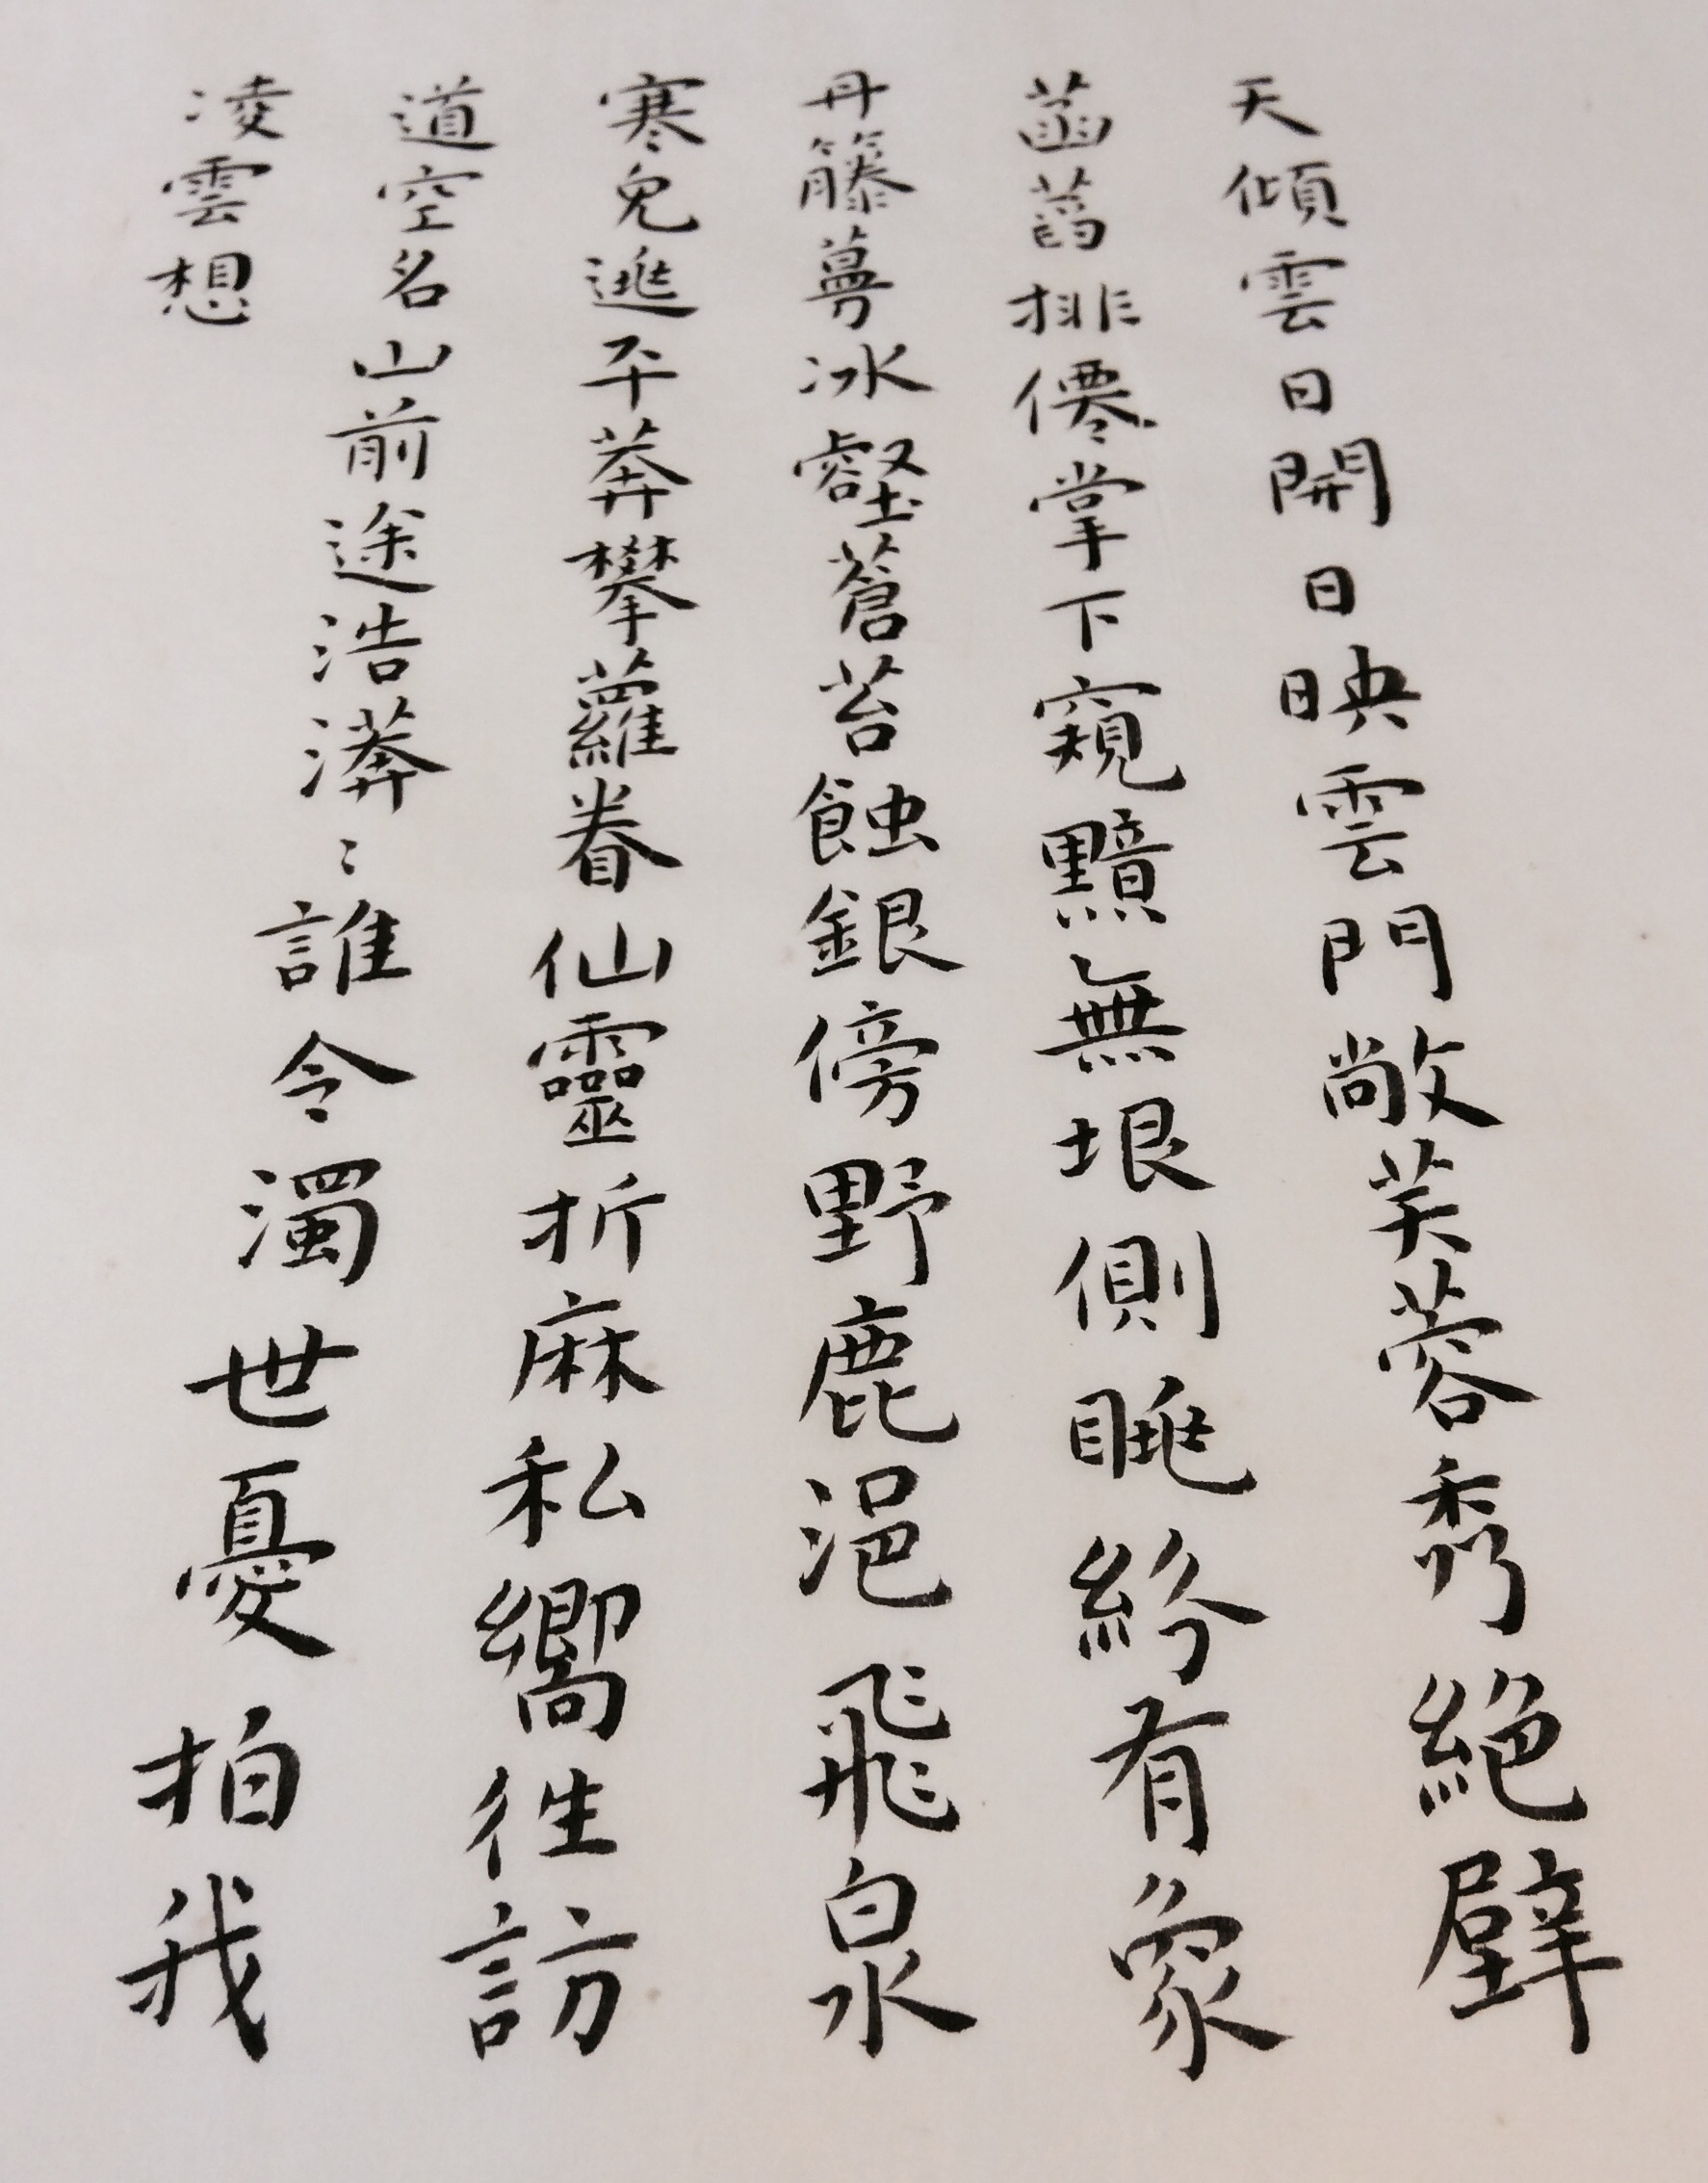 天傾雲日開日映雲門敞芙蓉秀絕壁
菡萏排僊掌下窺黯無垠側眺紛有象
丹籐蔓冰壑蒼苔蝕銀傍野鹿浥飛泉
寒兔逃平莽攀蘿眷仙靈折麻私嚮往訪
道空名山前途浩漭〻誰令濁世憂拍我
凌雲想